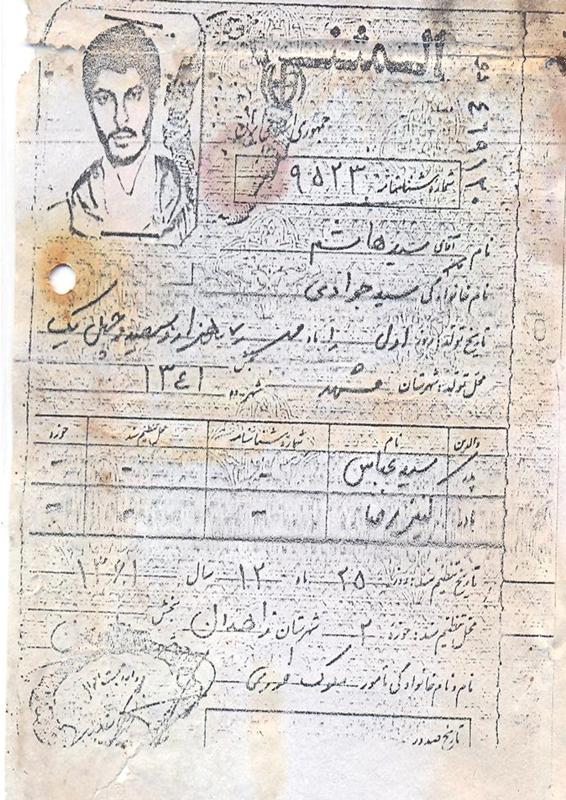 المثنی
جمهوری اسلامی ایران
شماره شناسنامه: ۹۵۲۳
نام آقای سید هاشم
نام خانوادگی سید جوادی
تاریخ تولد: روز اول ماه مهر هزار و سیصد و چهل یک
محل تولد: شهرستان مشهد بخش شهر-ده ۱۳٤۱
والدین نام شماره شناسنامه محل تنظیم سند حوزه
پدر سید عباس - - -
مادر کنیز رضا - - -
تاریخ تنظیم سند: روز ۲۵ ماه ۱۲ سال ۱۳۶۱
محل تنظیم سند: حوزه ۲ شهرستان زاهدان بخش
نام و نام خانوادگی مأمور
تاریخ صدور